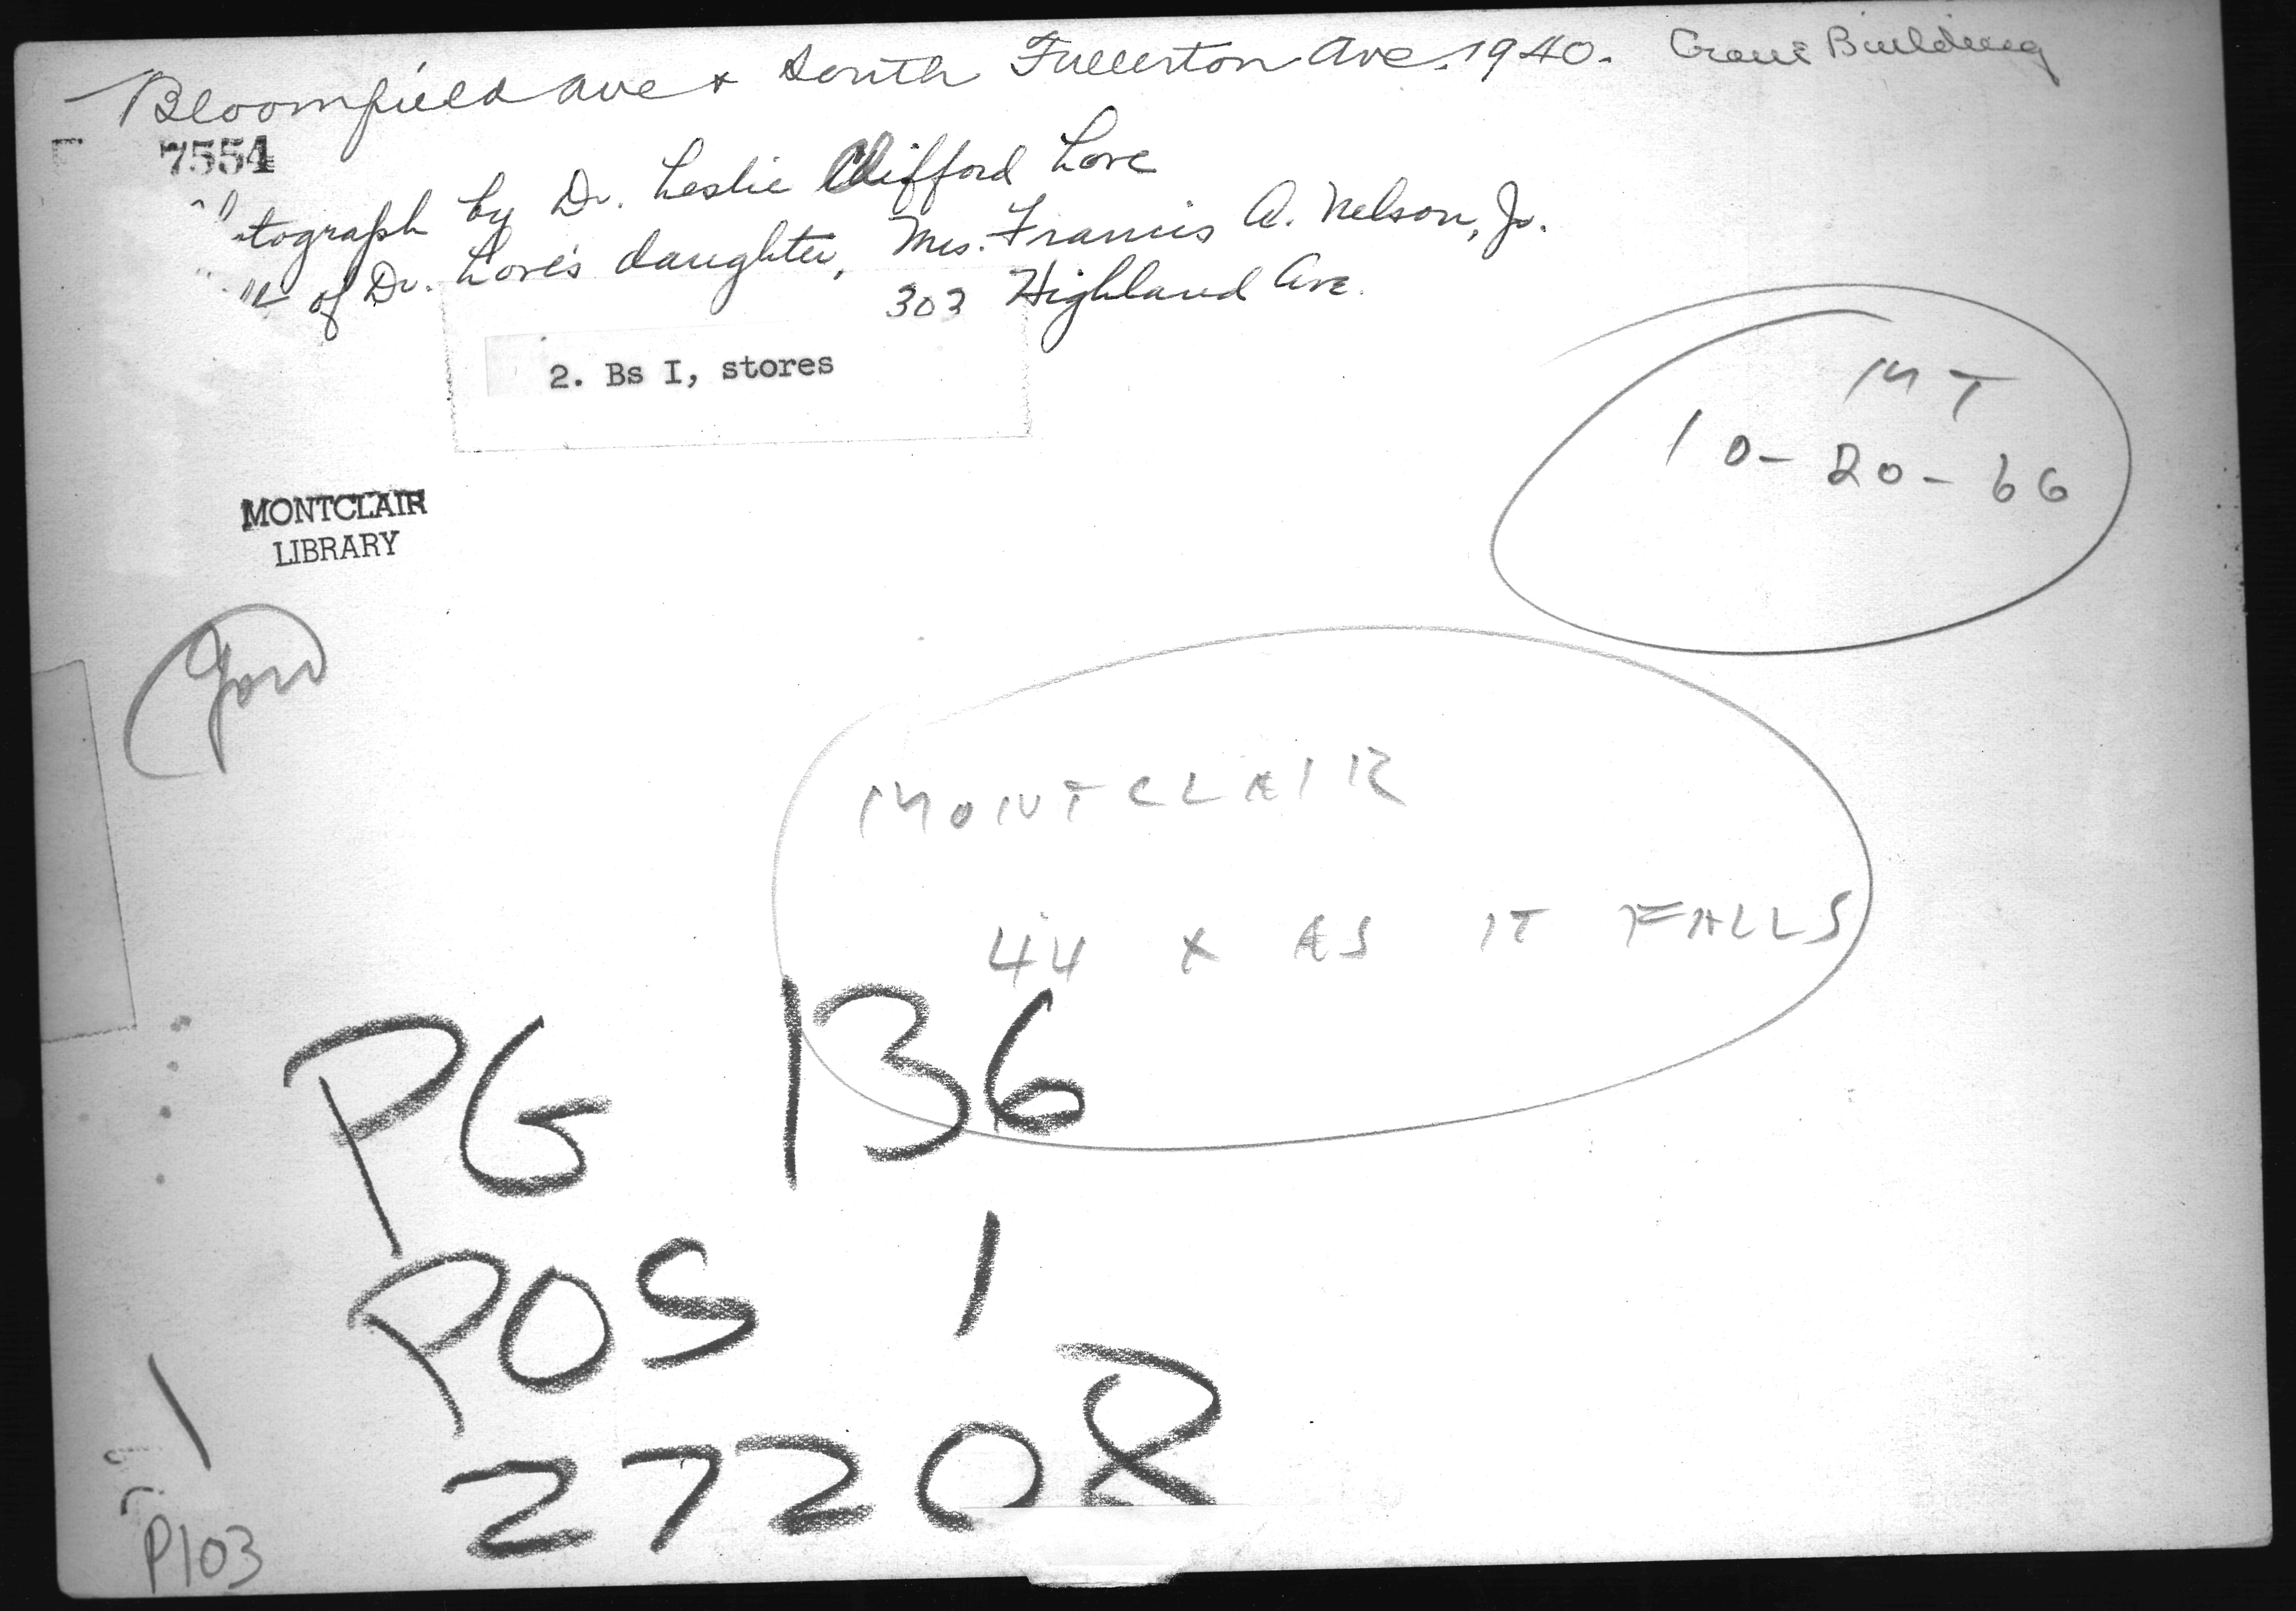 Bloomfield Ave & South Fullerton Ave. 1940. Crane Building
7554
tograph by Dr. Leslie Clifford Love
of Dr. Love's daughter, Mrs. Francis A. Nelson, Jr.
303 Highland Ave.
2. Bs I, stores
MT
10-20-66
MONTCLAIR
LIBRARY
MONTCLAIR
44 X AS IT FALLS
PG 136
POS 1
27208
P103